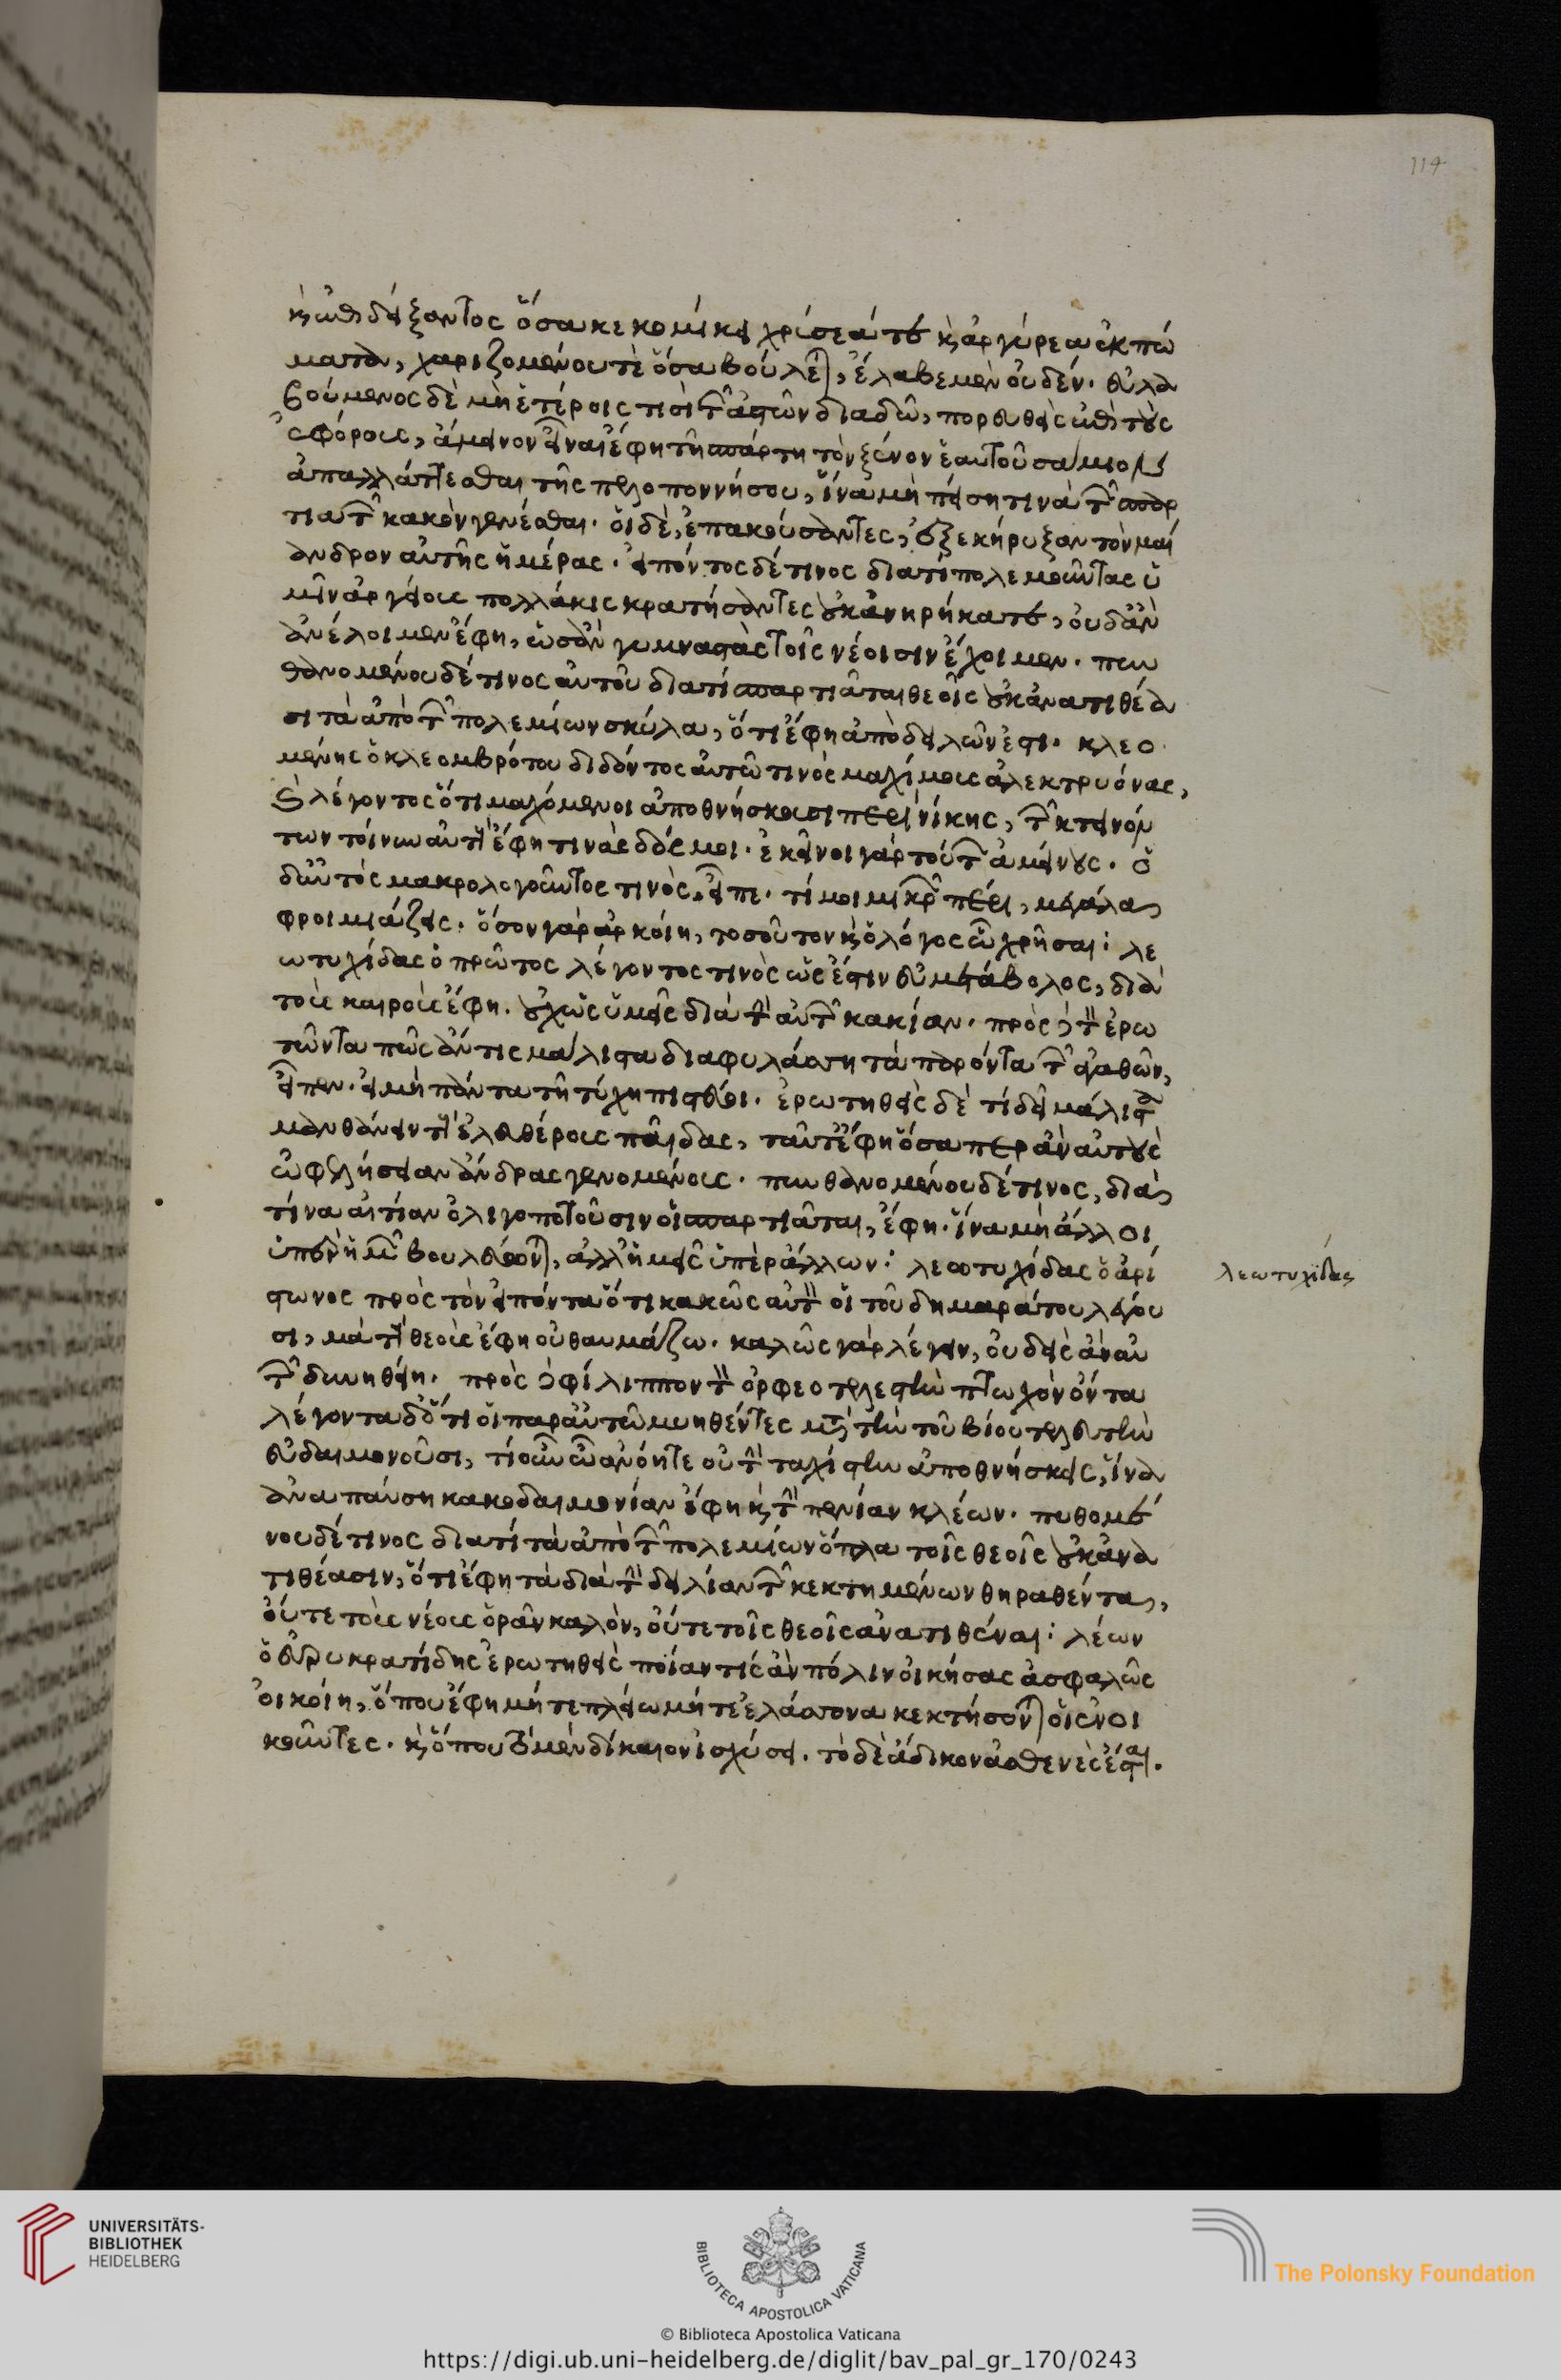 114
κ ἐπιδείξαντος ὅσα κεκομίκει χρύσεά τε κ ἀργύρεα ἐκπώ
ματα, χαριζομένου τὲ ὅσα βούλεται, ἔλαβε μὲν οὐδέν. εὐλα
βούμενος δὲ μὴ ἑτέροις τισὶ τῶν ἀστῶν διαδῶ, πορευθεὶς ἐπὶ τοὺς
ἐφόρους, ἄμεινον εἶναι ἔφη τῆ σπάρτη τὸν ξένον ἑαυτοῦ σάμιον
ἀπαλλάττεσθαι τῆς πελοποννήσου, ἵνα μὴ πείση τινὰ τῶν σπαρ
τιατῶν κακὸν γενέσθαι. οἱ δὲ, ἐπακούσαντες, ἐξεκήρυξαν τὸν μαί
ανδρον αὐτῆς ἡμέρας. εἰπόντος δέ τινος διατί πολεμοῦντας ὑ
μῖν ἀργείους πολλάκις κρατήσαντες οὐκ ἀνηρήκατε, οὐδ' ἂν
ἀνέλοιμεν ἔφη, ὡς ἂν γυμναστὰς τοῖς νέοισιν ἔχοιμεν. πυν
θανομένου δέ τινος αὐτοῦ διατί σπαρτιᾶται θεοῖς οὐκ ἀνατιθέα
σι τὰ ἀπὸ τῶν πολεμίων σκύλα, ὅτι ἔφη ἀπὸ δειλῶν ἐστι. κλεο
μένης ὁ κλεομβρότου διδόντος αὐτῶ τινὸς μαχίμους ἀλεκτρυόνας,
κ λέγοντος ὅτι μαχόμενοι ἀποθνήσκουσι περὶ νίκης, τῶν κτεινόν
των τοίνυν αὐτοὺς ἔφη τινὰς δός μοι. ἐκεῖνοι γὰρ τούτων ἀμείνους. ὁ
δ' αὐτὸς μακρολογοῦντος τινὸς, εἶπε. τί μοι μικρῶν πέρι, μεγάλα
φροιμιάζεις. ὅσον γὰρ ἀρκοίη, τοσοῦτον κ ὁ λόγος ὧ χρῆσαι: λε
ωτυχίδας ὁ πρῶτος λέγοντος τινὸς ὡς ἔστιν εὐμετάβολος, διὰ
τοὺς καιροὺς ἔφη. οὐχ ὡς ὑμεῖς διὰ τὴν αὐτῶν κακίαν. πρὸς δὲ τὸν ἐρω
τῶντα πῶς ἄν τις μάλιστα διαφυλάσση τὰ παρόντα τῶν ἀγαθῶν,
εἶπεν. εἰ μὴ πάντα τῆ τύχη πιστεύοι. ἐρωτηθεὶς δὲ τί δεῖ μάλιστα
μανθάνειν τοὺς ἐλευθέρους παῖδας, ταῦτ' ἔφη ὅσα περ ἂν αὐτοὺς
ὠφελήσειαν ἄνδρας γενομένους. πυνθανομένου δέ τινος, διὰ
τίνα αἰτίαν ὀλιγοποτοῦσιν οἱ σπαρτιᾶται, ἔφη. ἵνα μὴ ἄλλοι
ὑπὲρ ἡμῶν βουλεύωνται, ἀλλ' ἡμεῖς ὑπὲρ ἄλλων: λεωτυχίδας ὁ ἀρί
στωνος πρὸς τὸν εἰπόντα ὅτι κακῶς αὐτὸν οἱ τοῦ δημαράτου λέγου
σι, μὰ τοὺς θεοὺς ἔφη οὐ θαυμάζω. καλῶς γὰρ λέγειν, οὐδεὶς ἂν αὐ
τῶν δυνηθείη. πρὸς δὲ φίλιππον τὸν ὀρφεοτελεστὴν πτωχὸν ὄντα
λέγοντα δ' ὅτι οἱ παρ' αὐτῶ μυηθέντες μετὰ τὴν τοῦ βίου τελευτὴν
εὐδαιμονοῦσι, τί οὖν ὦ ἀνόητε οὐ τὴν ταχίστην ἀποθνήσκεις, ἵνα
ἀναπαύση κακοδαιμονίαν ἔφη κ τὴν πενίαν κλέων. πυθομέ
νου δέ τινος διατί τὰ ἀπὸ τῶν πολεμίων ὅπλα τοῖς θεοῖς οὐκ ἀνα
τιθέασιν, ὅτι ἔφη τὰ διὰ τὴν δειλίαν τῶν κεκτημένων θηραθέντα,
οὔτε τοὺς νέους ὁρᾶν καλὸν, οὔτε τοῖς θεοῖς ἀνατιθέναι: λέων
ὁ εὐρυκρατίδης ἐρωτηθεὶς ποίαν τίς ἂν πόλιν οἰκήσας ἀσφαλῶς
οἰκοίη, ὅπου ἔφη μήτε πλείω μήτε ἐλάσσονα κεκτήσονται οἱ ἐνοι
κοῦντες. κ ὅπου τὸ μὲν δίκαιον ἰσχύσει. τὸ δὲ ἄδικον ἀσθενὲς ἔσται.
λεωτυχίδας
UNIVERSITÄTS-
BIBLIOTHEK
HEIDELBERG
BIBLIOTECA APOSTOLICA VATICANA
© Biblioteca Apostolica Vaticana
The Polonsky Foundation
https://digi.ub.uni-heidelberg.de/diglit/bav_pal_gr_170/0243